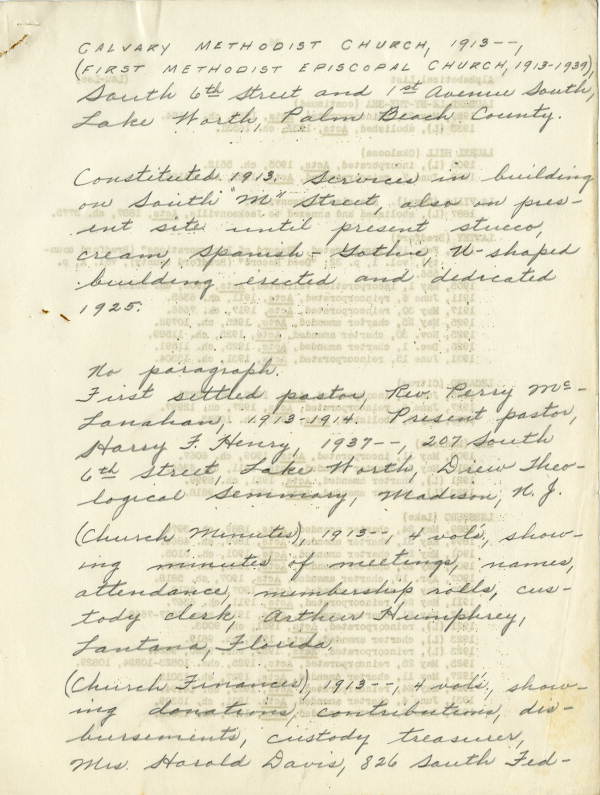 CALVARY METHODIST CHURCH, 1913--,
(FIRST METHODIST EPISCOPAL CHURCH, 1913-1939),
South 6th Street and 1st Avenue South,
Lake Worth, Palm Beach County.
Constituted 1913. Services in building
on South "M" Street, also on pres-
ent site until present stucco,
cream, Spanish-Gothic, U-shaped
building erected and dedicated
1925.
No paragraph.
First settled pastor, Rev. Perry Mc-
Lanahan, 1913-1914. Present pastor,
Harry F. Henry, 1937--, 207 South
6th Street, Lake Worth, Drew Theo-
logical Seminary, Madison, N. J.
(Church Minutes), 1913--, 4 vols., show-
ing minutes of meetings, names,
attendance, membership rolls, cus-
tody clerk, Arthur Humphrey,
Lantana, Florida.
(Church Finances), 1913--, 4 vols., show-
ing donations, contributions, dis-
bursements, custody treasurer,
Mrs. Harold Davis, 826 South Fed-